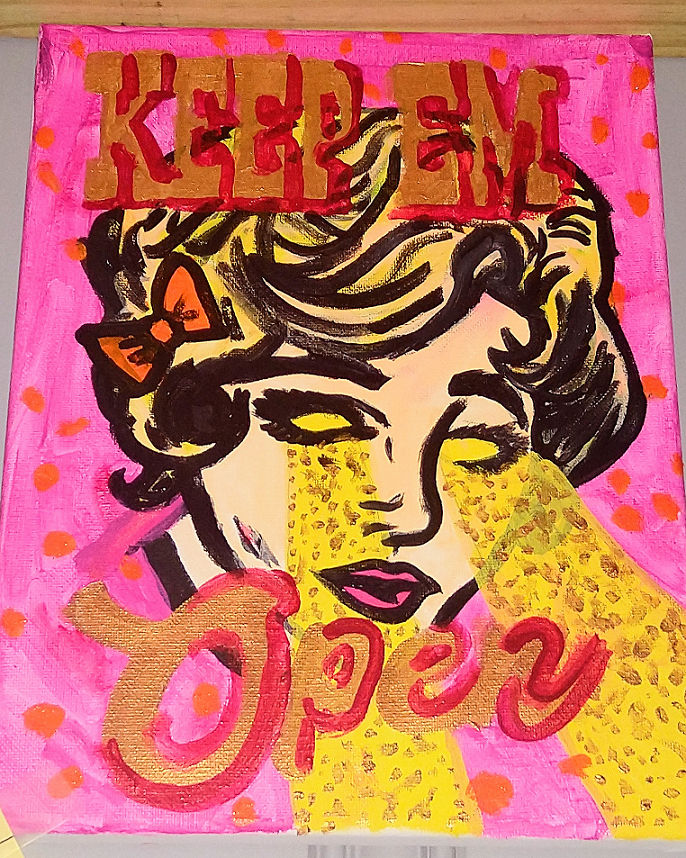 KEEP EM
Open